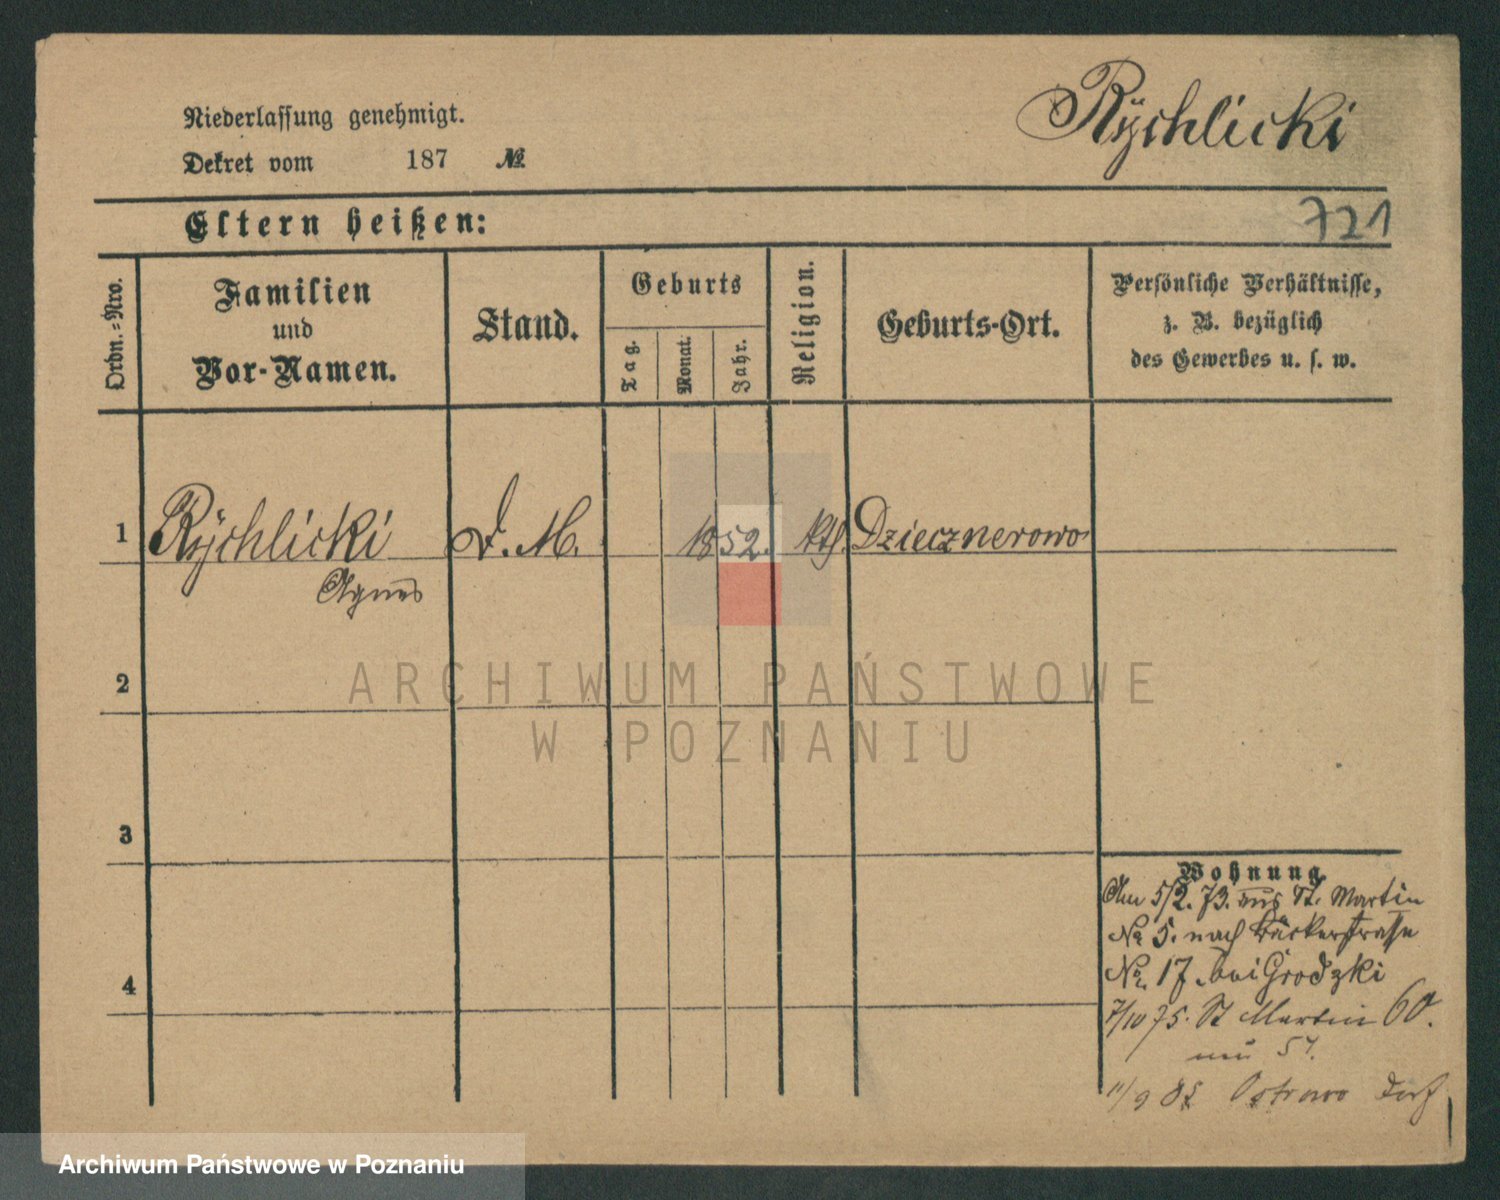 Niederlassung genehmigt.
Rychlicki
Dekret vom 187 №
Eltern heißen:
721
Ordn.-Nro.
Familien
und
Vor-Namen.
Stand.
Geburts
Tag.
Monat.
Jahr.
Religion.
Geburts-Ort.
Persönliche Verhältnisse,
z. B. bezüglich
des Gewerbes u. s. w.
1 Rychlicki D. M. 1852. kth. Dziecznerowo
Agnes
2
ARCHIWUM PAŃSTWOWE
W POZNANIU
3
Wohnung
Am 5/2. 73. aus St. Martin
No 5. nach Bäckerstraße
4
No. 17. bei Grodzki
7/10 75. St Martin 60.
57.
11/9 Ostrowo Dorf
Archiwum Państwowe w Poznaniu